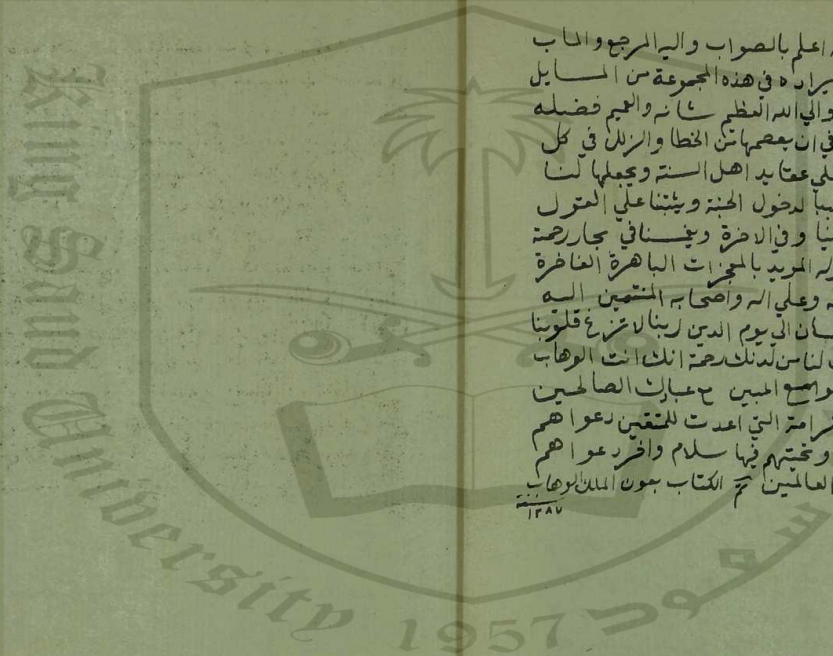 اعلم بالصواب واليه المرجع والماب
يراده في هذه المجموعة من المسايل
والي الله العظيم شانه والعميم فضله
في ان يعصمها من الخطا والزلل في كل
علي عقايد اهل السنة ويجعلها لنا
ببا لدخول الجنة ويثبتنا علي القول
نيا وفي الاخرة ويغمسنا في بحار رحمة
وله المويد بالمعجزات الباهرة الفاخرة
ه وعلي اله واصحابه المنتمين اليه
سان الي يوم الدين ربنا لا تزغ قلوبنا
لنا من لدنك رحمة انك انت الوهاب
المبين مع عبادك الصالحين
كرامة التي اعدت للمتقين دعواهم
وتحيتهم فيها سلام واخر دعواهم
العالمين تم الكتاب بعون الملك الوهاب
سنة
١٢٨٧
King Saud University
1957
سعود